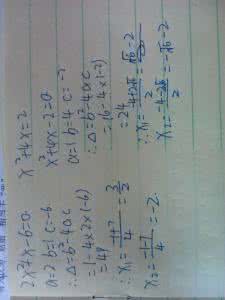 2x²+x-6=0
a=2 b=1 c=-6
∴Δ=b²-4ac
=1-4×2×(-6)
=49
∴x₁=(-1+7)/4=3/2
x₂=(-1-7)/4=-2
x²+4x=2
x²+4x-2=0
a=1 b=4 c=-2
∴Δ=b²-4ac
=16-4×(-2)
=24
∴x₁=(-4+2√6)/2=√6-2
x₂=(-4-2√6)/2=-√6-2